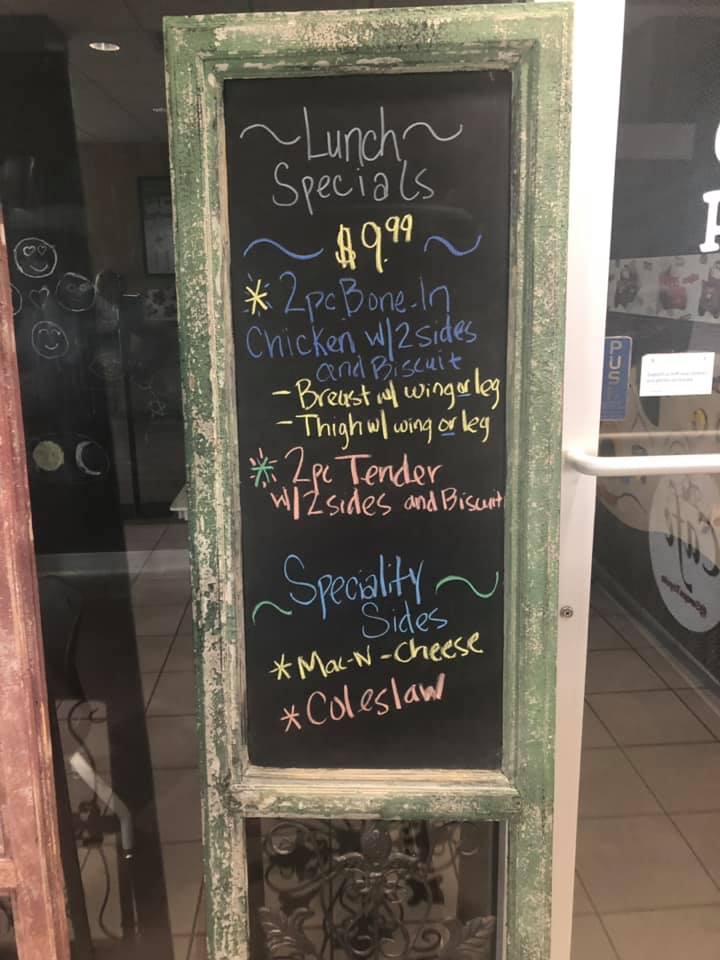 ~Lunch~
Specials
~ $9.99 ~
* 2pc Bone-In
Chicken w/2 sides
and Biscuit
- Breast w/ wing or leg
- Thigh w/ wing or leg
* 2pc Tender
w/2 sides and Biscuit
Speciality
~ Sides ~
* Mac-N-Cheese
* Coleslaw
PUS
Cafe